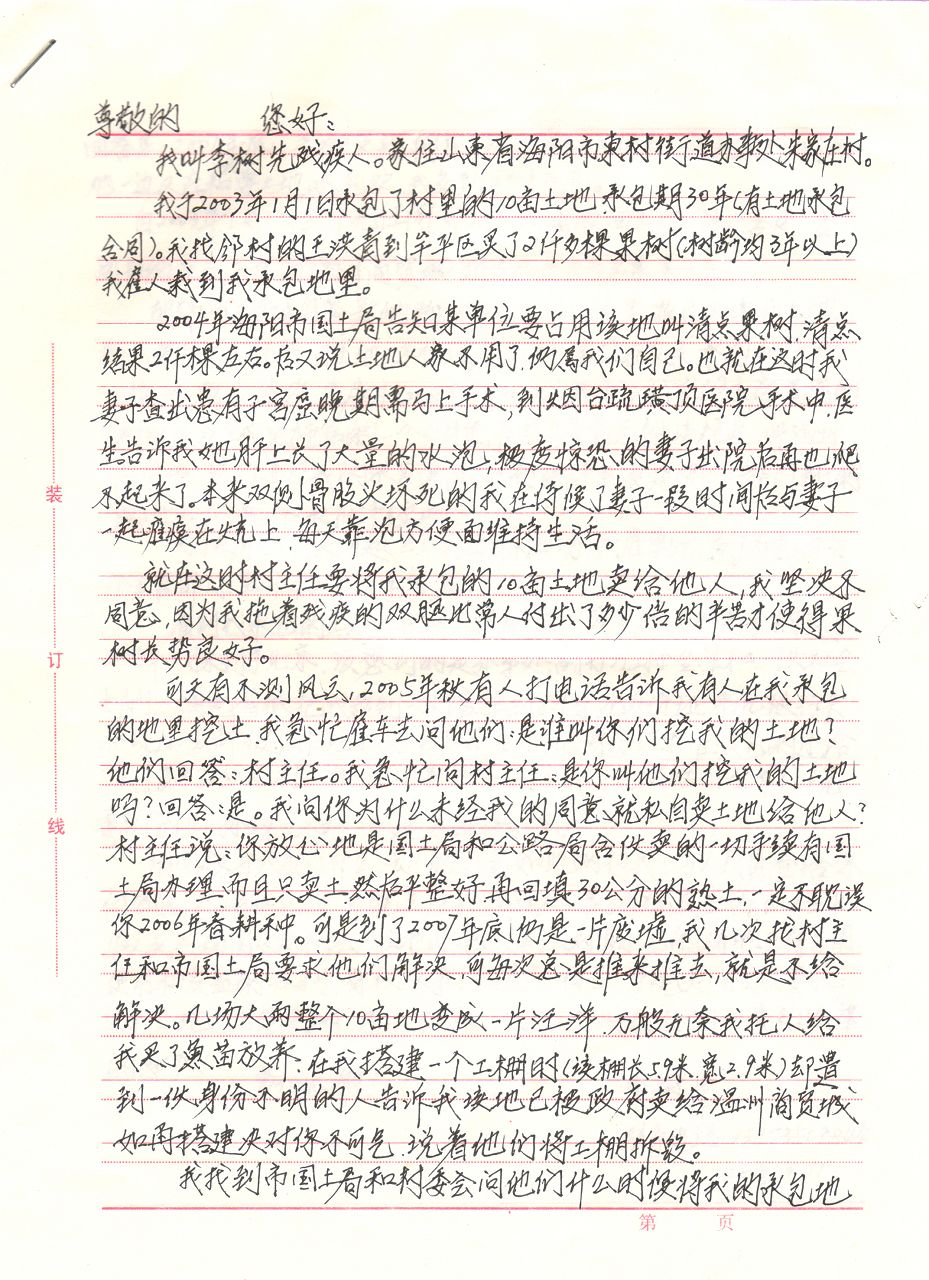 尊敬的 您好:
我叫李树先残疾人。家住山东省海阳市东村街道办事处朱家庄村。
我于2003年1月1日承包了村里的10亩土地.承包期30年(有土地承包
合同)。我找邻村的王洪青到牟平区买了2仟多棵果树(树龄均3年以上)
我雇人栽到我承包地里。
2004年海阳市国土局告知某单位要占用该地叫清点果树.清点
结果2仟棵左右。后又说土地人家不用了仍属我们自己。也就在这时我
妻子查出患有子宫癌晚期需马上手术,到烟台毓璜顶医院手术中.医
生告诉我她肝上长了大量的水泡,极度惊恐的妻子出院后再也爬
不起来了。本来双侧骨股头坏死的我在侍候了妻子一段时间后与妻子
一起瘫痪在炕上.每天靠泡方便面维持生活。
就在这时村主任要将我承包的10亩土地卖给他人,我坚决不
同意,因为我拖着残疾的双腿比常人付出了多少倍的辛苦才使得果
树长势良好。
可天有不测风云,2005年秋有人打电话告诉我有人在我承包
的地里挖土.我急忙雇车去问他们:是谁叫你们挖我的土地?
他们回答:村主任。我急忙问村主任:是你叫他们挖我的土地
吗?回答:是。我问你为什么未经我的同意就私自卖土地给他人?
村主任说:你放心地是国土局和公路局合伙卖的一切手续有国
土局办理.而且只卖土.然后平整好.再回填30公分的熟土.一定不耽误
你2006年春耕种。可是到了2007年底仍是一片废墟.我几次找村主
任和市国土局要求他们解决.可每次总是推来推去,就是不给
解决。几场大雨整个10亩地变成一片汪洋.万般无奈我托人给
我买了鱼苗放养.在我搭建一个工棚时(该棚长5.9米.宽2.9米)却遭
到一伙身份不明的人告诉我该地已被政府卖给温州商贸城
如再搭建决对你不可气.说着他们将工棚拆毁。
我找到市国土局和村委会问他们什么时候将我的承包地
装
订
线
第 页